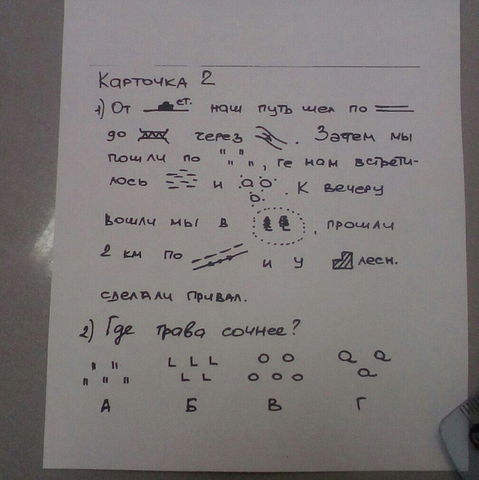 Карточка 2
1) От ст. наш путь шел по
до через . Затем мы
пошли по " " " " , ге нам встрети-
лось и . К вечеру
вошли мы в , прошли
2 км по и у лесн.
сделали привал.
2) Где трава сочнее?
А Б В Г